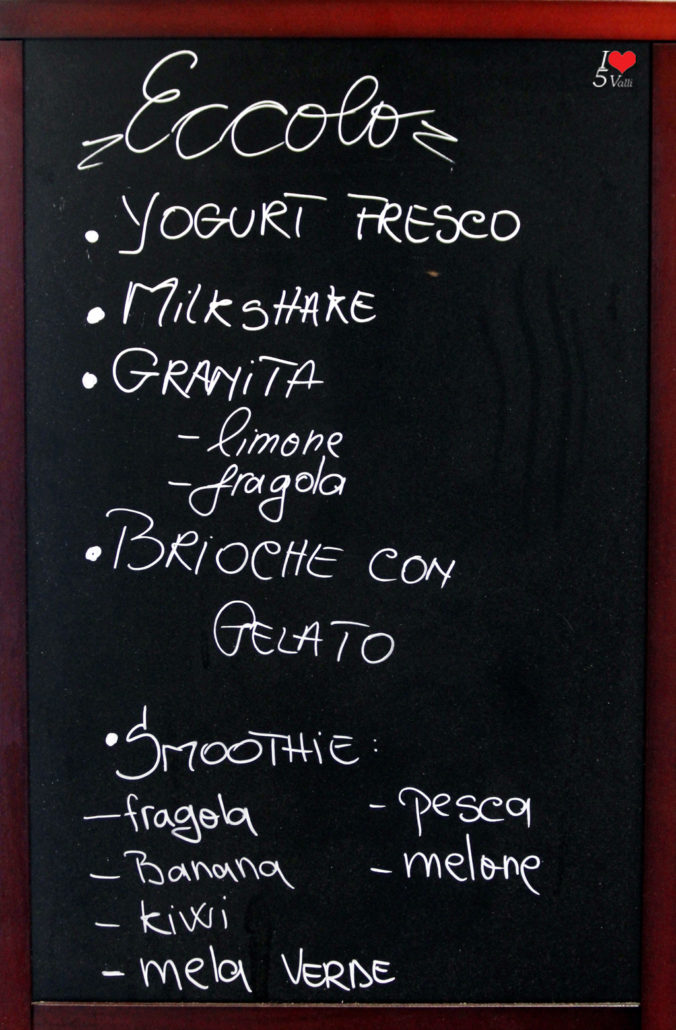 I ❤
5 Valli
Eccolo
• YOGURT FRESCO
• MILKSHAKE
• GRANITA
- limone
- fragola
• BRIOCHE CON
GELATO
• SMOOTHIE:
- fragola
- pesca
- Banana
- melone
- kiwi
- mela VERDE